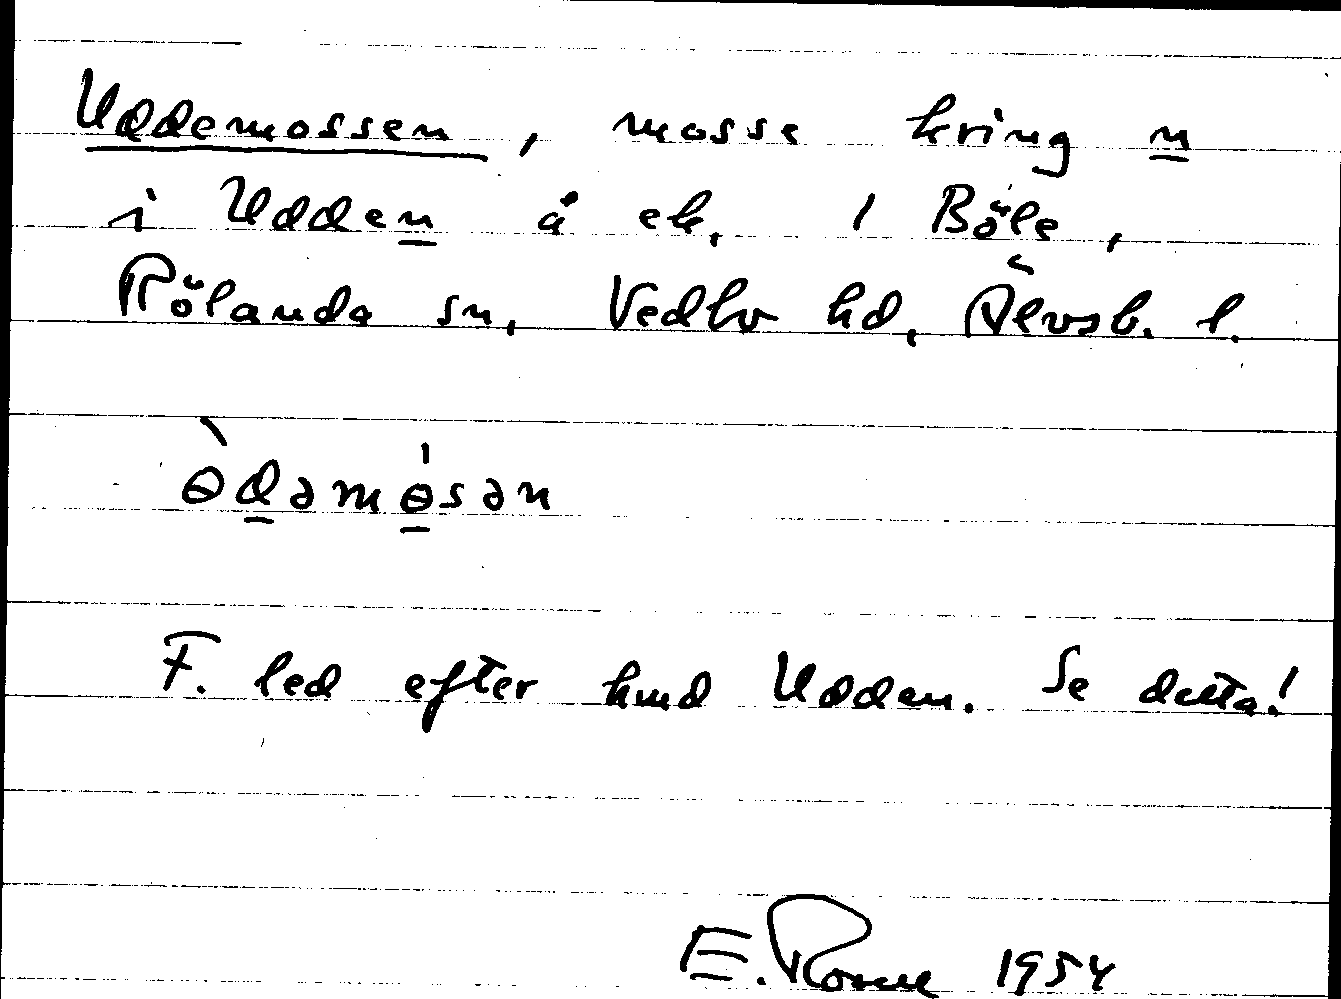 Uddemossen, mosse kring n
i Udden å ek. 1 Böle,
Rölanda sn, Vedbo hd, Älvsb. l.
ɵ̀dəmɵ́sən
F. led efter hmd Udden. Se detta!
E. 1954